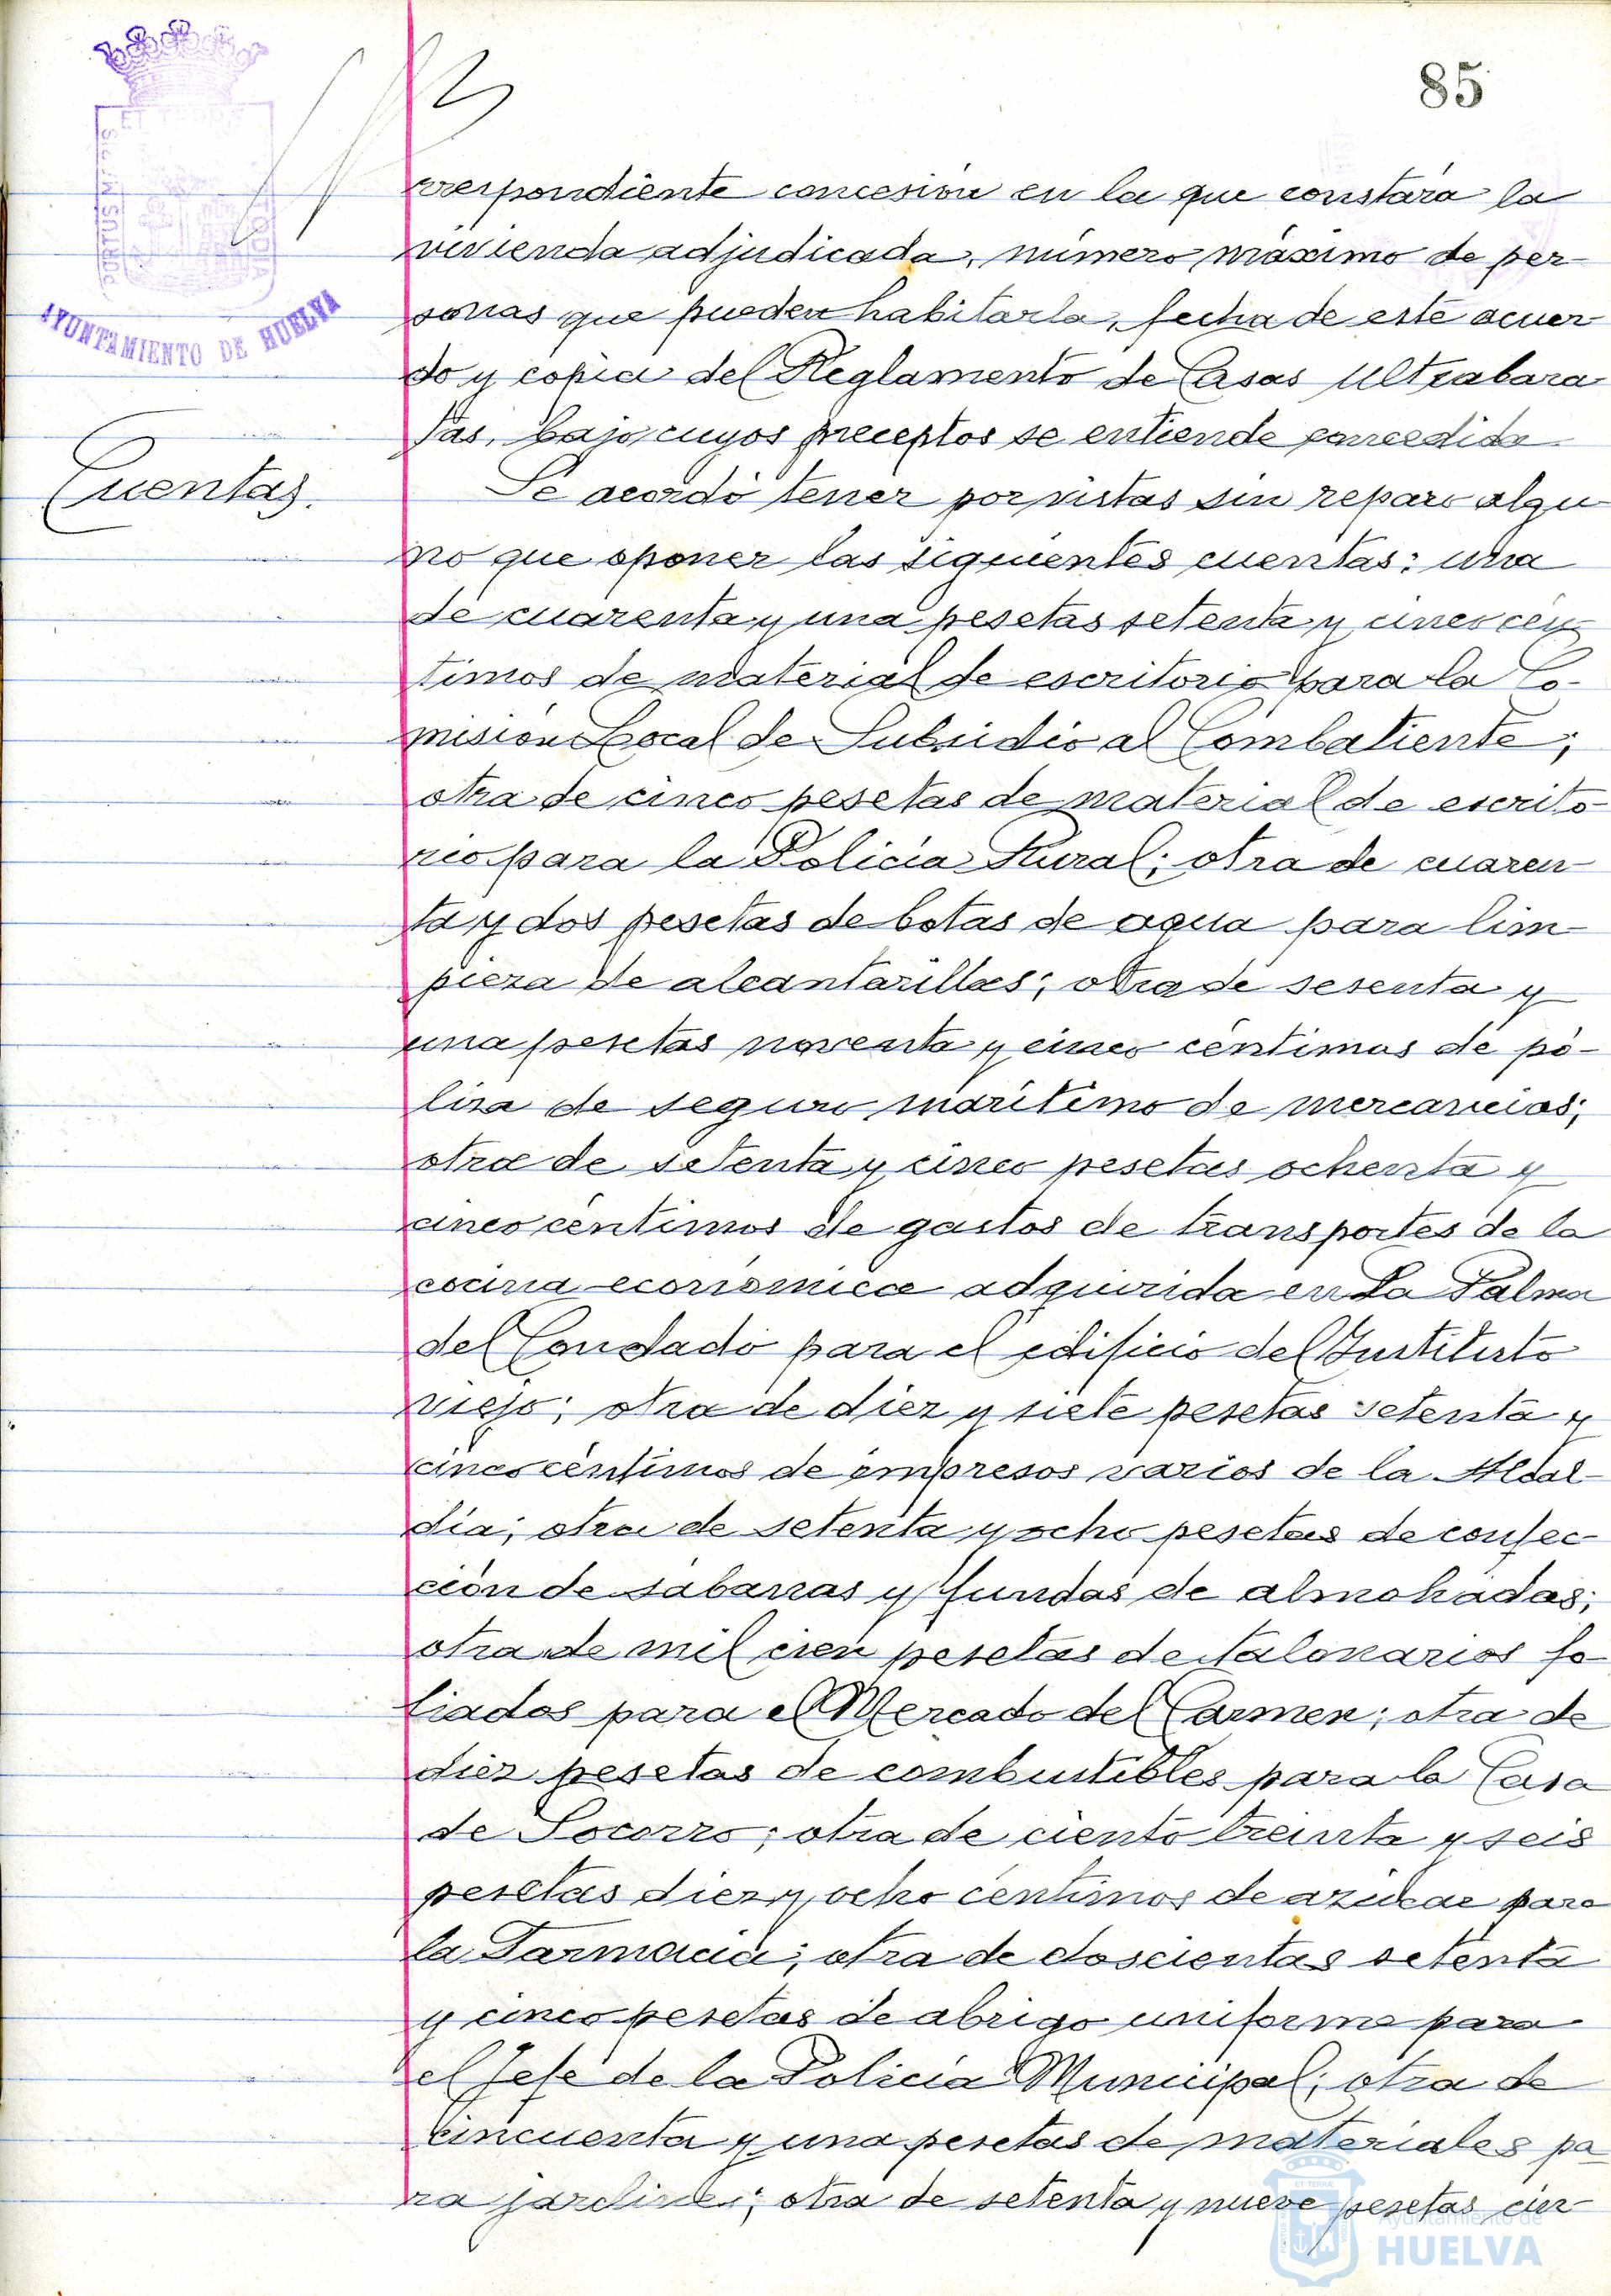 85
rrespondiente concesión en la que constara la
vivienda adjudicada, número máximo de per-
sonas que pueden habitarla, fecha de este acuer
do y copia del Reglamento de Casas Ultrabara
tas, bajo cuyos preceptos se entiende concedida.
Cuentas.
Se acordó tener por vistas sin reparo algu
no que oponer las siguientes cuentas: una
de cuarenta y una pesetas setenta y cinco cén
timos de material de escritorio para la Co-
misión Local de Subsidio al Combatiente;
otra de cinco pesetas de material de escrito-
rio para la Policía Rural; otra de cuaren-
ta y dos pesetas de botas de agua para lim-
pieza de alcantarillas; otra de sesenta y
una pesetas noventa y cinco céntimos de pó-
liza de seguro marítimo de mercancías;
otra de setenta y cinco pesetas ochenta y
cinco céntimos de gastos de transportes de la
cocina económica adquirida en La Palma
del Condado para el edificio del Instituto
viejo; otra de diez y siete pesetas setenta y
cinco céntimos de impresos varios de la Alcal-
día; otra de setenta y ocho pesetas de confec-
ción de sábanas y fundas de almohadas;
otra de mil cien pesetas de talonarios fo-
liados para el Mercado del Carmen; otra de
diez pesetas de combustibles para la Casa
de Socorro; otra de ciento treinta y seis
pesetas diez y ocho céntimos de azúcar para
la Farmacia; otra de doscientas setenta
y cinco pesetas de abrigo uniforme para
el Jefe de la Policía Municipal; otra de
cincuenta y una pesetas de materiales pa
ra jardines; otra de setenta y nueve pesetas cin-
AYUNTAMIENTO DE HUELVA
Ayuntamiento de
HUELVA